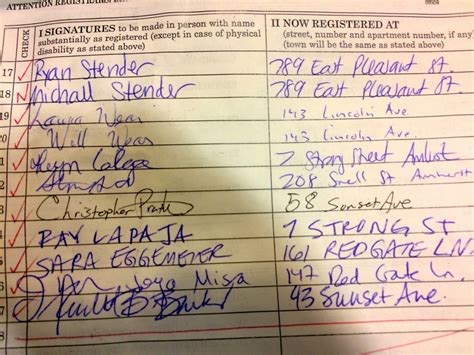 ATTENTION REGISTRARS
CHECK
I SIGNATURES to be made in person with name
substantially as registered (except in case of physical
disability as stated above)
II NOW REGISTERED AT
(street, number and apartment number, if any)
(town will be the same as stated above)
17 Ryan Stender 789 East Pleasant St.
18 N Michall Stender 789 East Pleasant St.
19 Laura Wear 143 Lincoln Ave
Will Wear 143 Lincoln Ave.
7 Strong Street Amherst
2 208 Snell St Amherst
3 Christopher 58 Sunset Ave
RAY LA RAJA 7 STRONG ST
SARA EGGEMEIER 161 REDGATE LN.
Misra 147 Red Gate Ln.
43 Sunset Ave.